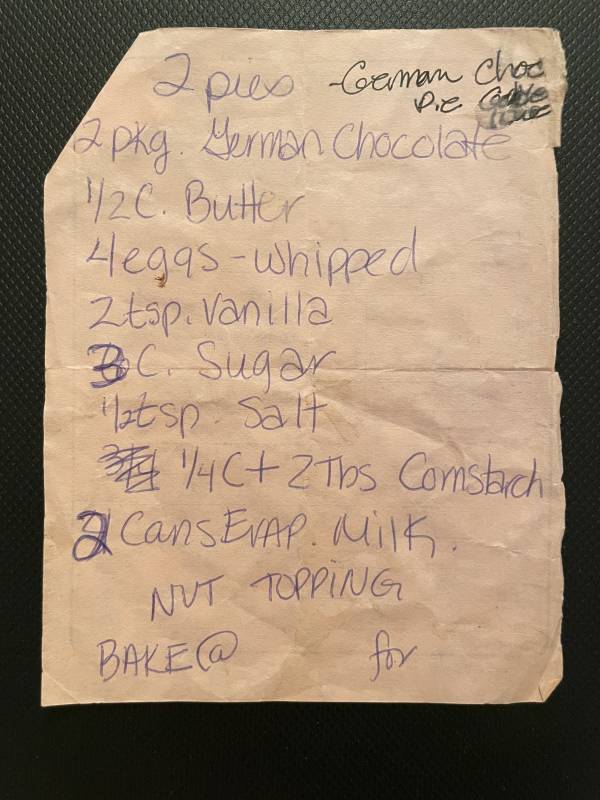 2 pies - German Choc
Pie
2 pkg. German Chocolate
1/2 C. Butter
4 eggs - whipped
2 tsp. Vanilla
3 C. Sugar
1/2 tsp. Salt
1/4 C + 2 Tbs Cornstarch
2 Cans EVAP. Milk.
NUT TOPPING
BAKE @ for